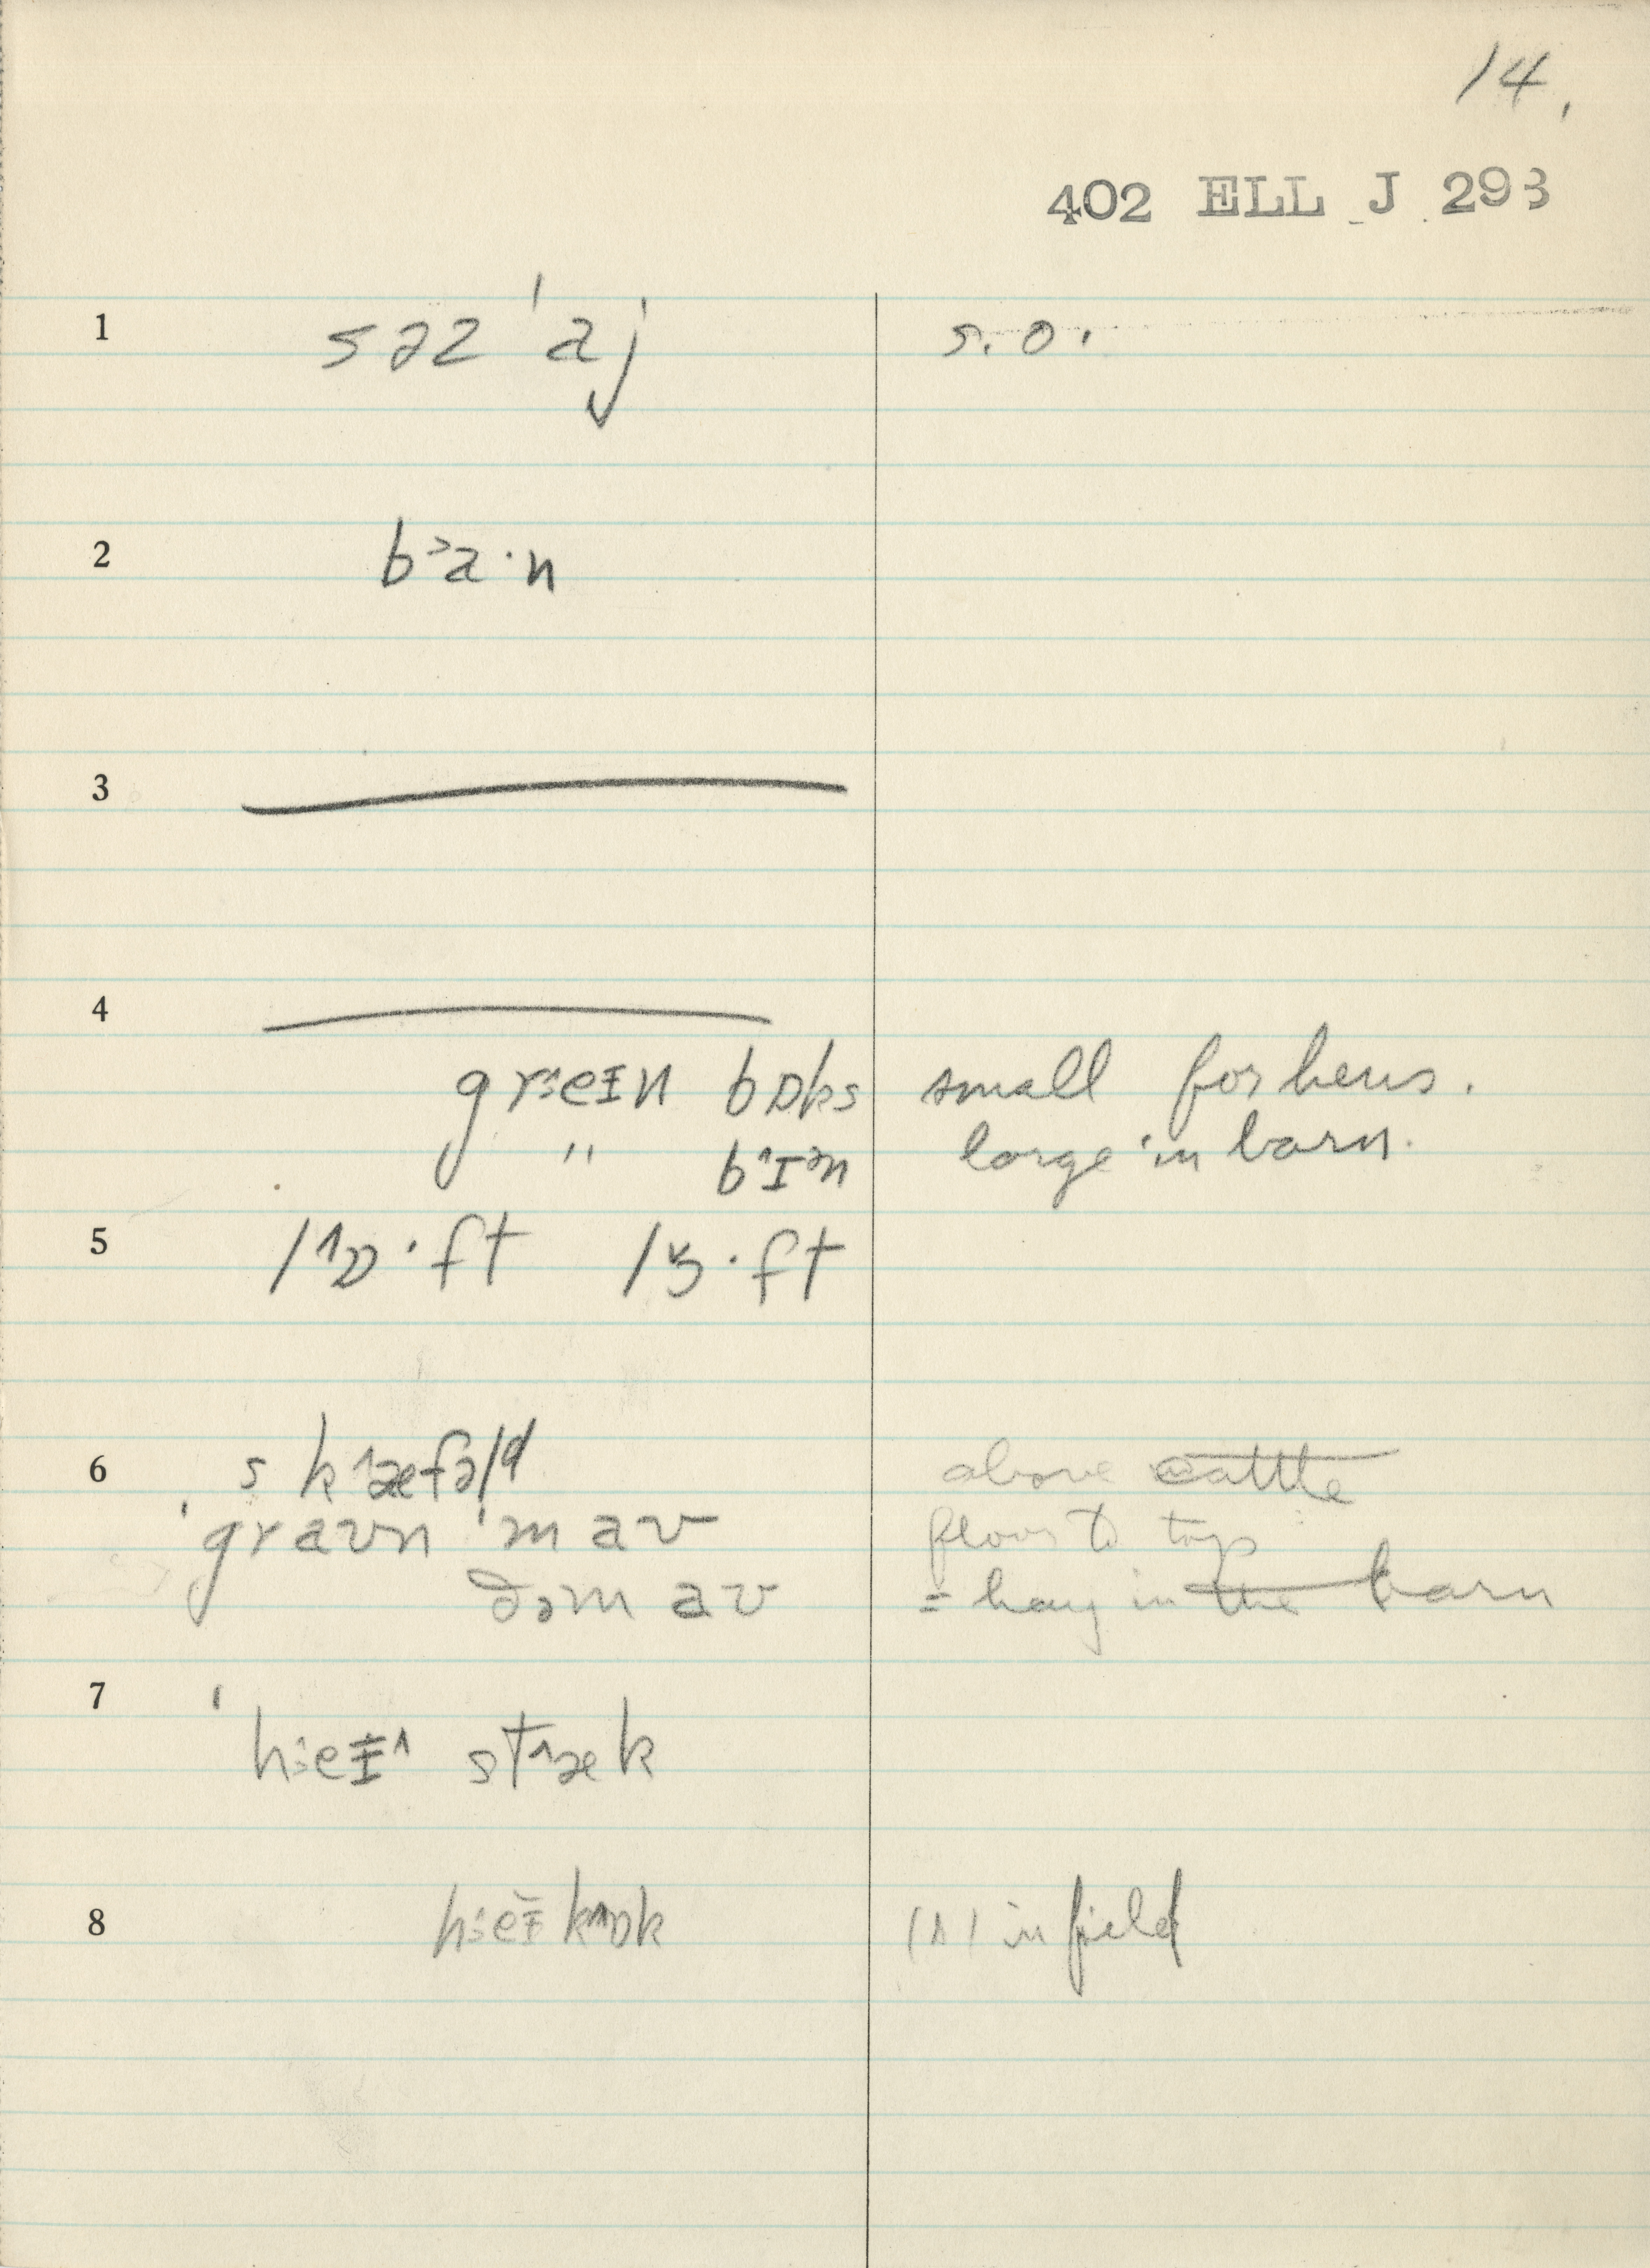 14.
402 ELL J 293
1 səz ˈaj s.o.
2 b˃a·n
3
4
greɪn bɒks small for hens.
" b˄ɪᵊn large in barn.
5 l˄ɒ·ft lɔ˅·ft
6 sk˄æfəld above cattle
ˈgravn ˈmav floor to top
ðəmav = hay in the barn
7 ˈheɪ˄ st˄æk
8 heɪ kɒk (ʌ) in field